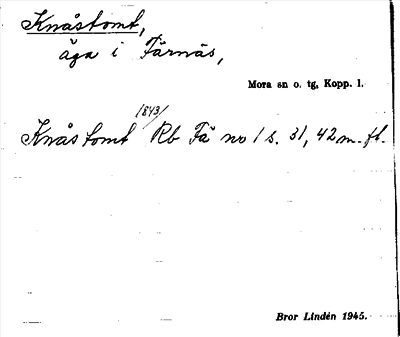 Knåstomt,
äga i Färnäs,
Mora sn o. tg, Kopp. l.
/1843/
Knåstomt Rb Fä no 1 s. 31, 42 m. fl.
Bror Lindén 1945.